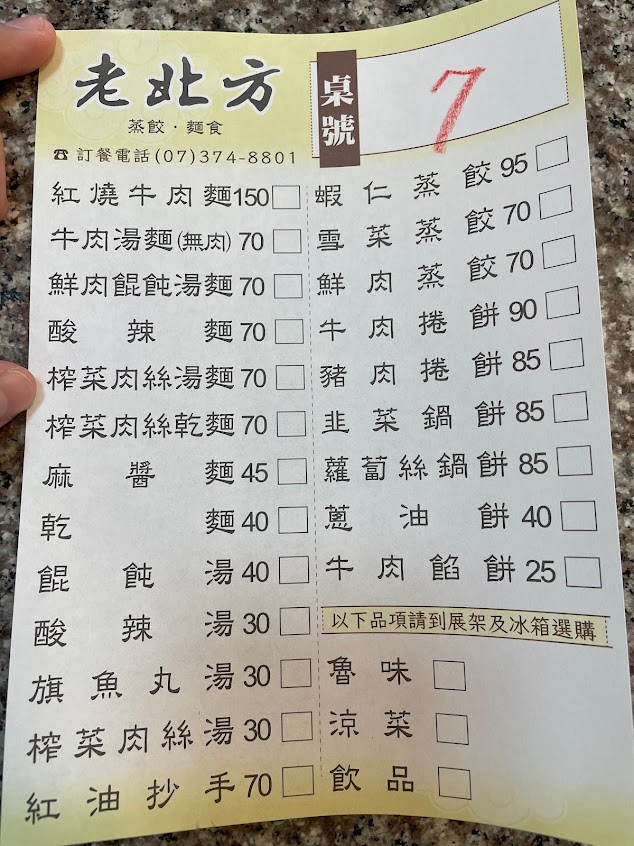 老北方
蒸餃·麵食
☎訂餐電話(07)374-8801
桌號
7
紅燒牛肉麵150
牛肉湯麵(無肉) 70
鮮肉餛飩湯麵 70
酸辣麵 70
榨菜肉絲湯麵 70
榨菜肉絲乾麵 70
麻醬麵 45
乾麵 40
餛飩湯 40
酸辣湯 30
旗魚丸湯 30
榨菜肉絲湯 30
紅油抄手 70
蝦仁蒸餃 95
雪菜蒸餃 70
鮮肉蒸餃 70
牛肉捲餅 90
豬肉捲餅 85
韭菜鍋餅 85
蘿蔔絲鍋餅 85
蔥油餅 40
牛肉餡餅 25
以下品項請到展架及冰箱選購
魯味
涼菜
飲品